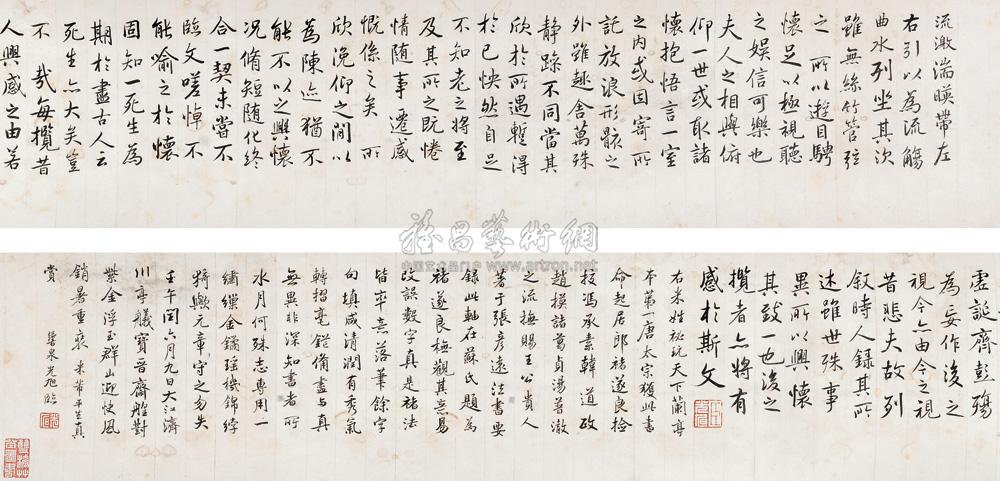 流激湍暎帶左
右引以為流觴
曲水列坐其次
雖無絲竹管弦
之
所以遊目騁
懷足以極視聽
之娛信可樂也
夫人之相與俯
仰一世或取諸
懷抱悟言一室
之内或因寄所
託放浪形骸之
外雖趣舍萬殊
静躁不同當其
欣於所遇蹔得
於己怏然自足
不知老之將至
及其所之既惓
情隨事遷感
慨係之矣
所
欣俛仰之間以
為陳迹猶不
能不以之興懷
况脩短隨化終
合一契未嘗不
臨文嗟悼不
能喻之於懷
固知一死生為
期於盡古人云
死生亦大矣豈
不
哉每攬昔
人興感之由若
虛誕齊彭殤
為妄作後之
視今亦由今之視
昔悲夫故列
叙時人録其所
述雖世殊事
異所以興懷
其致一也後之
攬者亦將有
感於斯文
右米姓秘玩天下蘭亭
本第一唐太宗獲此書
命起居郎褚遂良檢
校馮承素韓道政
趙模諸葛貞湯普澈
之流摹賜王公貴人
著于張彦遠法書要
録此軸在蘇氏題為
褚遂良摹觀其意易
改誤數字真是褚法
皆率意落筆餘字
勾填咸清潤有秀氣
轉摺毫鋩備盡與真
無異非深知書者所
水月何殊志專用一
繡繅金鐍瑶機錦綍
猗歟元章守之勿失
壬午閏六月九日大江濟
川亭艤寶晉齋艎對
紫金浮玉群山迎快風
銷暑重裝米芾平生真
賞
光旭臨